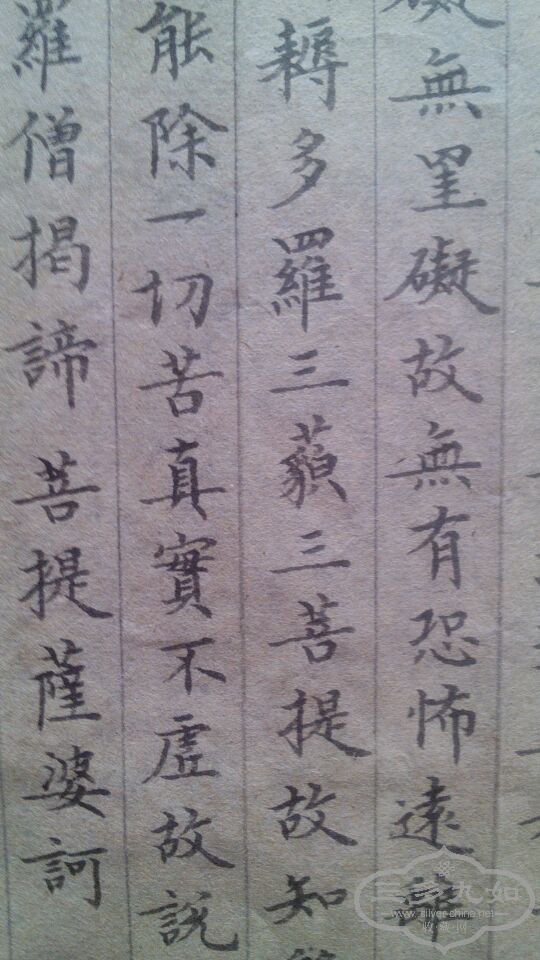 礙無罣礙故無有恐怖遠離
耨多羅三藐三菩提故知
能除一切苦真實不虛故說
羅僧揭諦菩提薩婆訶
三多九如
www.silver-china.net
收藏网